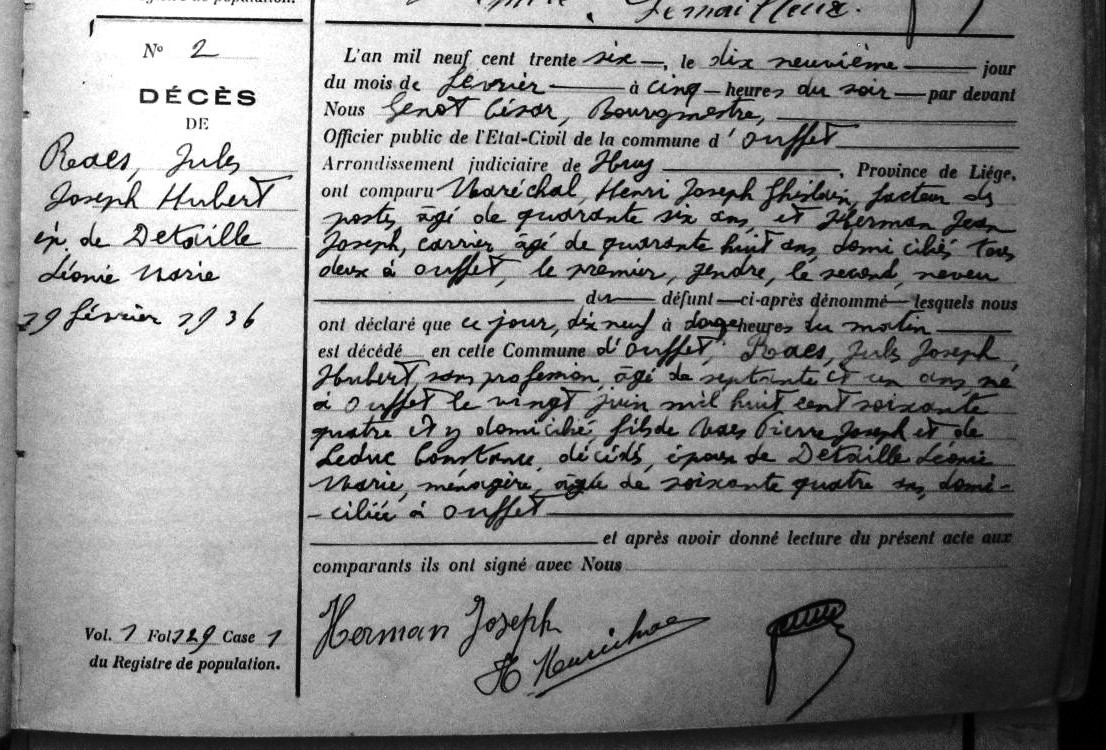 Lemailleux.
N° 2
DÉCÈS
DE
Raes, Jules
Joseph Hubert
ép. de Detaille
Léonie Marie
19 février 1936
Vol. 1 Fol 129 Case 1
du Registre de population.
L'an mil neuf cent trente six, le dix neuvième jour
du mois de février à cinq heures du soir par devant
Nous Genot César, Bourgmestre,
Officier public de l'Etat-Civil de la commune d'Ouffet
Arrondissement judiciaire de Huy, Province de Liége,
ont comparu Maréchal, Henri Joseph Ghislain, facteur des
postes, âgé de quarante six ans, et Herman Jean
Joseph, carrier, âgé de quarante huit ans, domiciliés tous
deux à Ouffet, le premier, gendre, le second, neveu
du défunt ci-après dénommé lesquels nous
ont déclaré que ce jour, dix neuf à heures du matin
est décédé en cette Commune d'Ouffet, Raes, Jules Joseph
Hubert, sans profession, âgé de septante et un ans, né
à Ouffet le vingt juin mil huit cent soixante
quatre et y domicilié, fils de Raes Pierre Joseph et de
Leduc Constance, décédés, époux de Detaille Léonie
Marie, ménagère, âgée de soixante quatre ans, domi-
-ciliée à Ouffet
et après avoir donné lecture du présent acte aux
comparants ils ont signé avec Nous
Herman Joseph
H Maréchal